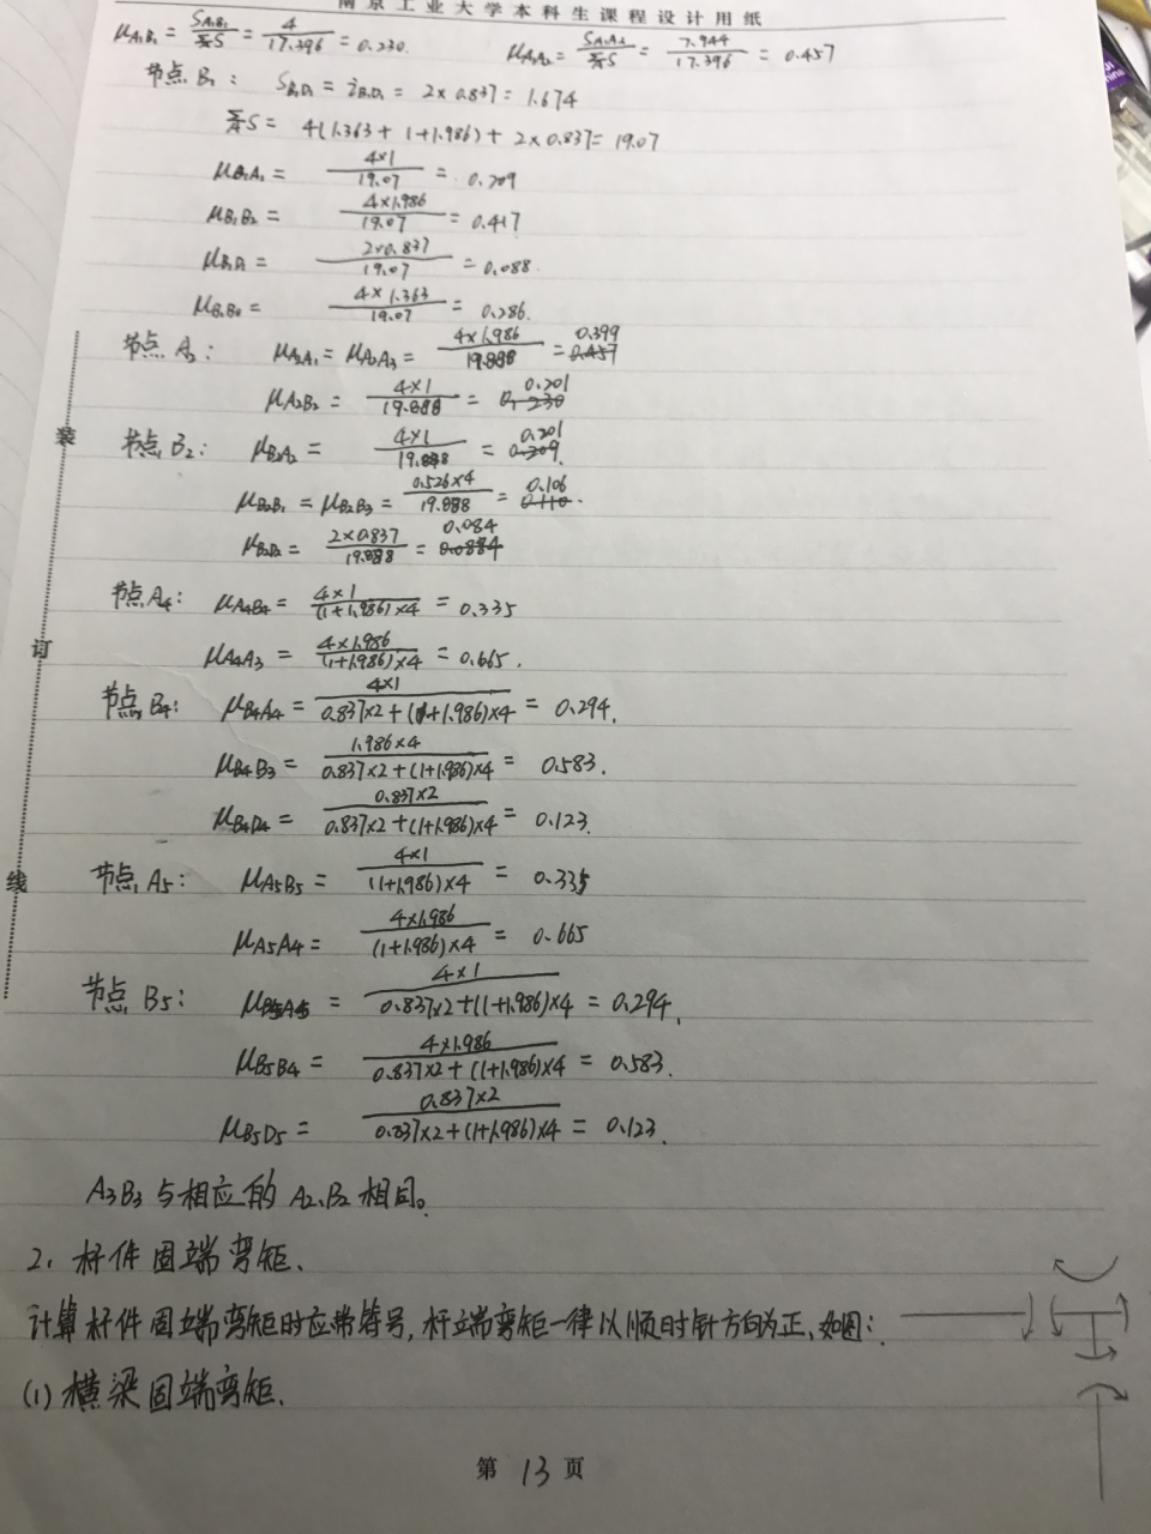 南京工业大学本科生课程设计用纸
μA₁B₁ = SA₁B₁/ΣS = 4/17.396 = 0.230. μA₁A₂ = SA₁A₂/ΣS = 7.944/17.396 = 0.457
节点 B₁: SB₁D₁ = iB₁D₁ = 2×0.837 = 1.674
ΣS = 4(1.363+1+1.986)+2×0.837 = 19.07
μB₁A₁ = 4×1/19.07 = 0.209
μB₁B₂ = 4×1.986/19.07 = 0.417
μB₁D₁ = 2×0.837/19.07 = 0.088.
μB₁B₀ = 4×1.363/19.07 = 0.286.
节点 A₂: μA₂A₁ = μA₂A₃ = 4×1.986/19.888 = 0.399 0.457
μA₂B₂ = 4×1/19.888 = 0.201 0.230
节点 B₂: μB₂A₂ = 4×1/19.888 = 0.201 0.209.
μB₂B₁ = μB₂B₃ = 0.526×4/19.888 = 0.106 0.110.
μB₂D₂ = 2×0.837/19.888 = 0.084 0.0884
节点 A₄: μA₄B₄ = 4×1/(1+1.986)×4 = 0.335
μA₄A₃ = 4×1.986/(1+1.986)×4 = 0.665.
节点 B₄: μB₄A₄ = 4×1/0.837×2+(1+1.986)×4 = 0.294.
μB₄B₃ = 1.986×4/0.837×2+(1+1.986)×4 = 0.583.
μB₄D₄ = 0.837×2/0.837×2+(1+1.986)×4 = 0.123.
节点 A₅: μA₅B₅ = 4×1/(1+1.986)×4 = 0.335
μA₅A₄ = 4×1.986/(1+1.986)×4 = 0.665
节点 B₅: μB₅A₅ = 4×1/0.837×2+(1+1.986)×4 = 0.294.
μB₅B₄ = 4×1.986/0.837×2+(1+1.986)×4 = 0.583.
μB₅D₅ = 0.837×2/0.837×2+(1+1.986)×4 = 0.123.
A₃B₃与相应的 A₂、B₂ 相同。
2. 杆件固端弯矩.
计算杆件固端弯矩时应带符号,杆端弯矩一律以顺时针方向为正,如图:
(1) 横梁固端弯矩.
第 13 页
装
订
线